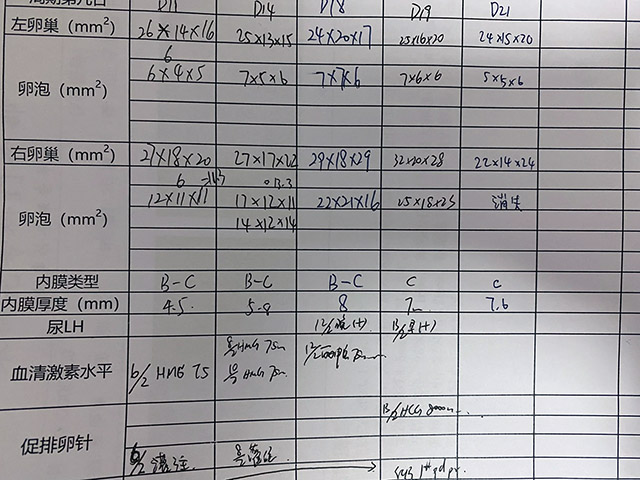 周期第几日 D11 D14 D18 D19 D21
左卵巢（mm²） 26×14×16 25×13×15 24×20×17 25×16×20 24×15×20
6
卵泡（mm²） 6×4×5 7×5×6 7×7×6 7×6×6 5×5×6
右卵巢（mm²） 27×18×20 27×17×22 29×18×29 32×20×28 22×14×24
6
卵泡（mm²） 12×11×11 17×12×11 22×21×16 25×18×23 消失
14×12×14
内膜类型 B-C B-C B-C C C
内膜厚度（mm） 4.5 5.8 8 7 7.6
尿LH 12/2 (+) 13/2 (+)
血清激素水平 6/2 HMG 75 HMG 75 HMG 75
促排卵针 13/2 HCG